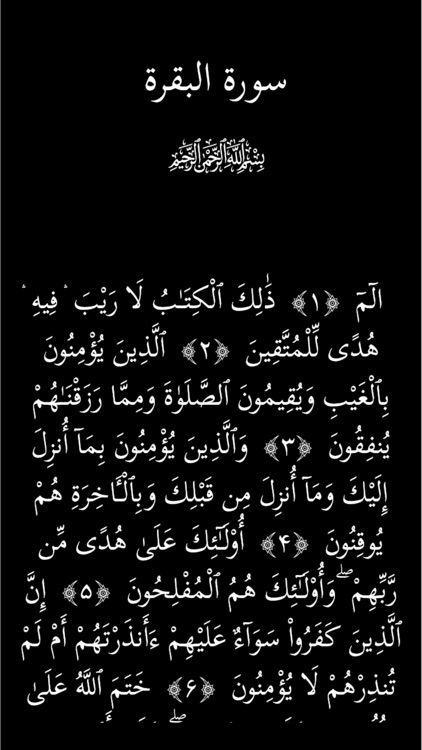 سورة البقرة
بِسْمِ ٱللَّهِ ٱلرَّحْمَٰنِ ٱلرَّحِيمِ
الٓمٓ ﴿١﴾ ذَٰلِكَ ٱلْكِتَـٰبُ لَا رَيْبَ ۛ فِيهِ ۛ
هُدًى لِّلْمُتَّقِينَ ﴿٢﴾ ٱلَّذِينَ يُؤْمِنُونَ
بِٱلْغَيْبِ وَيُقِيمُونَ ٱلصَّلَوٰةَ وَمِمَّا رَزَقْنَـٰهُمْ
يُنفِقُونَ ﴿٣﴾ وَٱلَّذِينَ يُؤْمِنُونَ بِمَآ أُنزِلَ
إِلَيْكَ وَمَآ أُنزِلَ مِن قَبْلِكَ وَبِٱلْـَٔاخِرَةِ هُمْ
يُوقِنُونَ ﴿۴﴾ أُو۟لَـٰٓئِكَ عَلَىٰ هُدًى مِّن
رَّبِّهِمْ ۖ وَأُو۟لَـٰٓئِكَ هُمُ ٱلْمُفْلِحُونَ ﴿۵﴾ إِنَّ
ٱلَّذِينَ كَفَرُوا۟ سَوَآءٌ عَلَيْهِمْ ءَأَنذَرْتَهُمْ أَمْ لَمْ
تُنذِرْهُمْ لَا يُؤْمِنُونَ ﴿۶﴾ خَتَمَ ٱللَّهُ عَلَىٰ